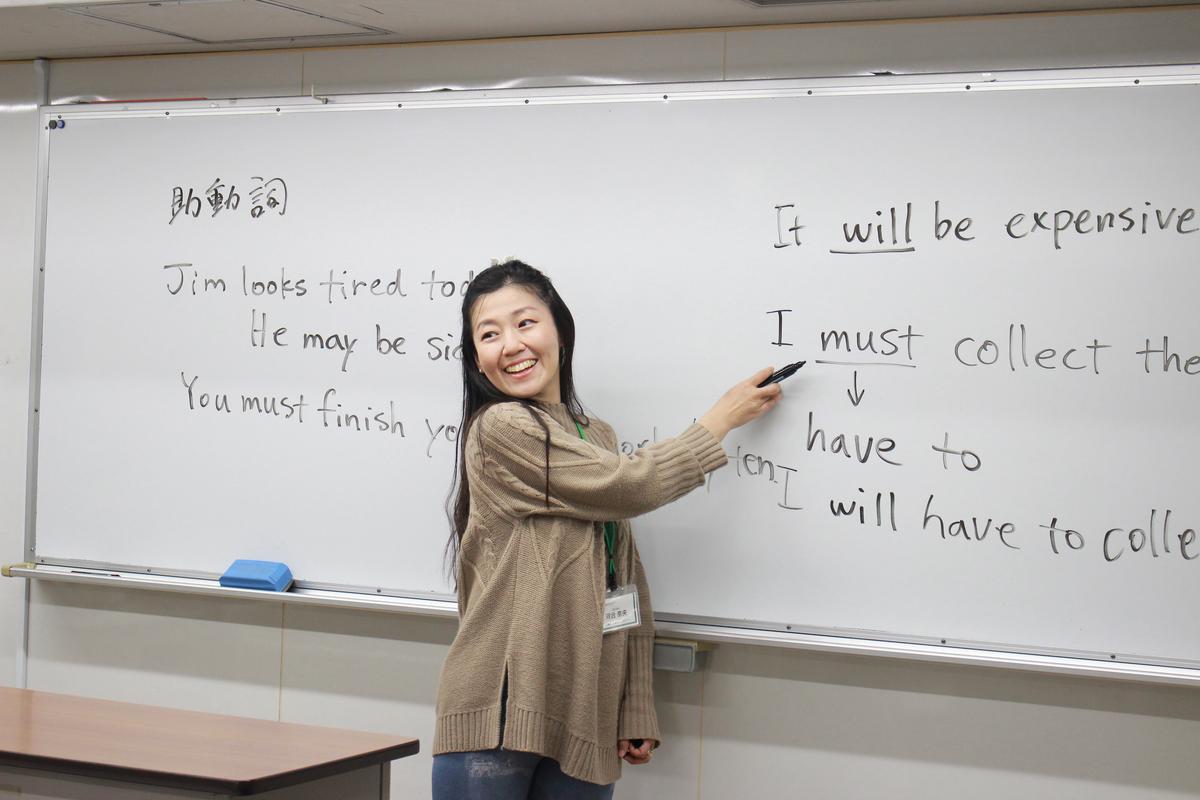 助動詞
Jim looks tired
He may be
You must finish
ten.
It will be expensive
I must collect the
↓
have to
I will have to colle